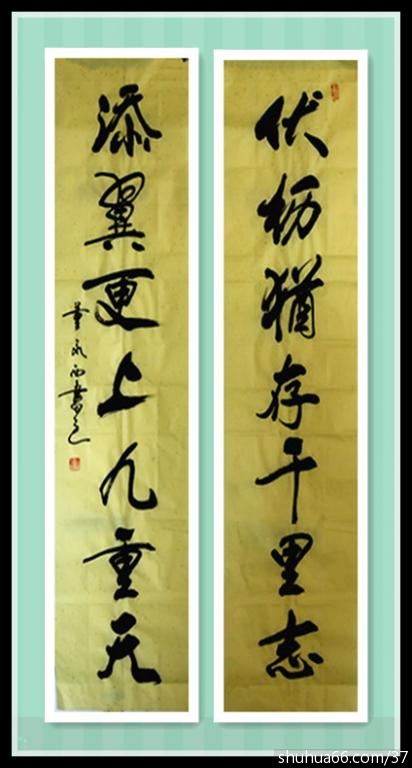 伏枥猶存千里志
添翼更上九重天
董永西書
shuhua66.com/37